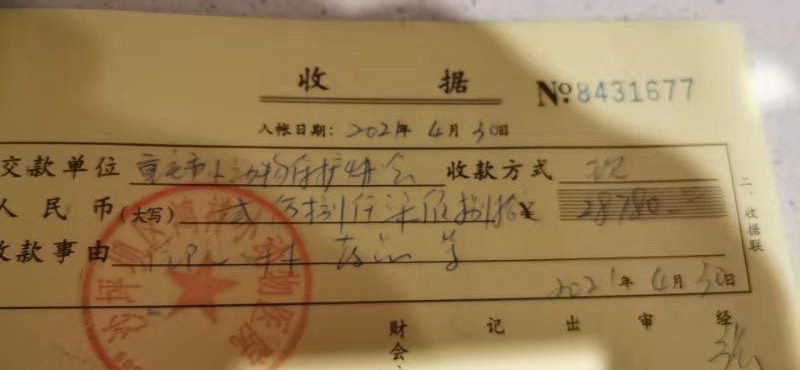 收 据
№ 8431677
入帐日期: 2021年 4月 30日
交款单位 重庆市小动物保护协会 收款方式 现
人民币(大写) 贰万捌仟柒佰捌拾 ¥ 28780
收款事由
2021年 4月 30日
二、收据联
财会 记 出 审 经
沙坪坝 动物医院